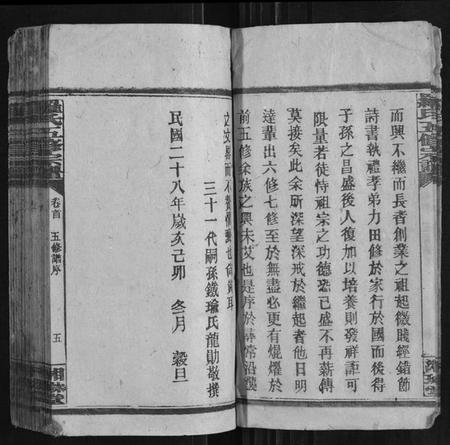 而興不繼而長者創業之祖起微賤經錯節
詩書執禮孝弟力田修於家行於國而後得
子孫之昌盛後人復加以培養則發祥詎可
限量若徒恃祖宗之功德恐已盛不再薪傳
莫接矣此余所深望深戒於繼起者他日明
達輩出六修七修至於無盡必更有焜燿於
前五修余族之興未艾也是序於
三十一代嗣孫鐵瑜氏龍勛敬撰
民國二十八年歲亥己卯 冬月 穀旦
羅氏五修宗譜
卷首 五修譜序
五